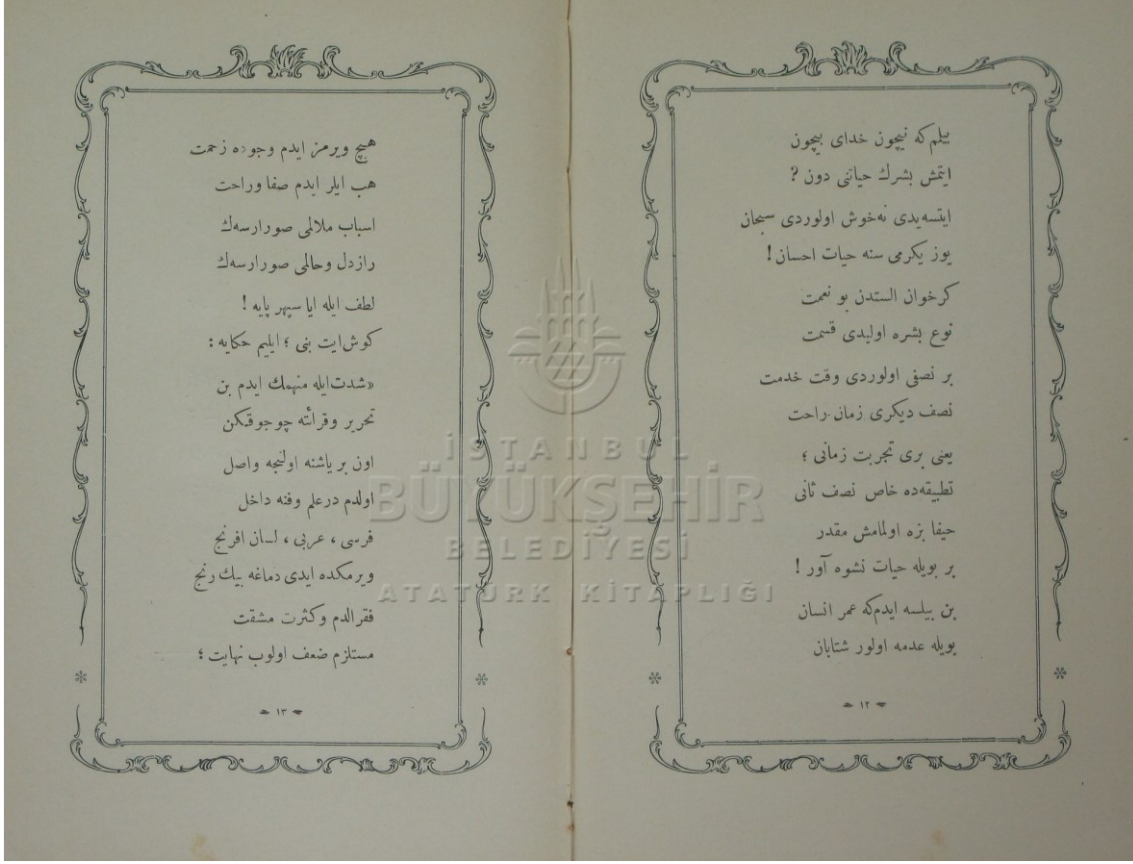 بیلم که نیچون خدای بیچون
ایتمش بشرك حیاتنی دون ?
ایتسه‌یدی نه‌خوش اولوردی سبحان
یوز یکرمی سنه حیات احسان !
کرخوان الستدن بو نعمت
نوع بشره اولیدی قسمت
بر نصفی اولوردی وقت خدمت
نصف دیکری زمان راحت
یعنی بری تجربت زمانی ؛
تطبیقه‌ده خاص نصف ثانی
حیفا بزه اولمامش مقدر
بر بویله حیات نشوه آور !
بن بیلسه ایدم‌که عمر انسان
بویله عدمه اولور شتابان
١٢
هیچ ویرمز ایدم وجوده زحمت
هب ایلر ایدم صفا وراحت
اسباب ملالمی صورارسه‌ك
رازدل وحالمی صورارسه‌ك
لطف ایله ایا سپهر پایه !
کوش‌ایت بنی ؛ ایلیم حکایه :
«شدت‌ایله منهمك ایدم بن
تحریر وقرائته چوجوقکن
اون بر یاشنه اولنجه واصل
اولدم درعلم وفنه داخل
فرسی ، عربی ، لسان افرنج
ویرمکده ایدی دماغه بیك رنج
فقرالدم وکثرت مشقت
مستلزم ضعف اولوب نهایت ؛
١٣
İSTANBUL
BÜYÜKŞEHİR
BELEDİYESİ
ATATÜRK KİTAPLIĞI